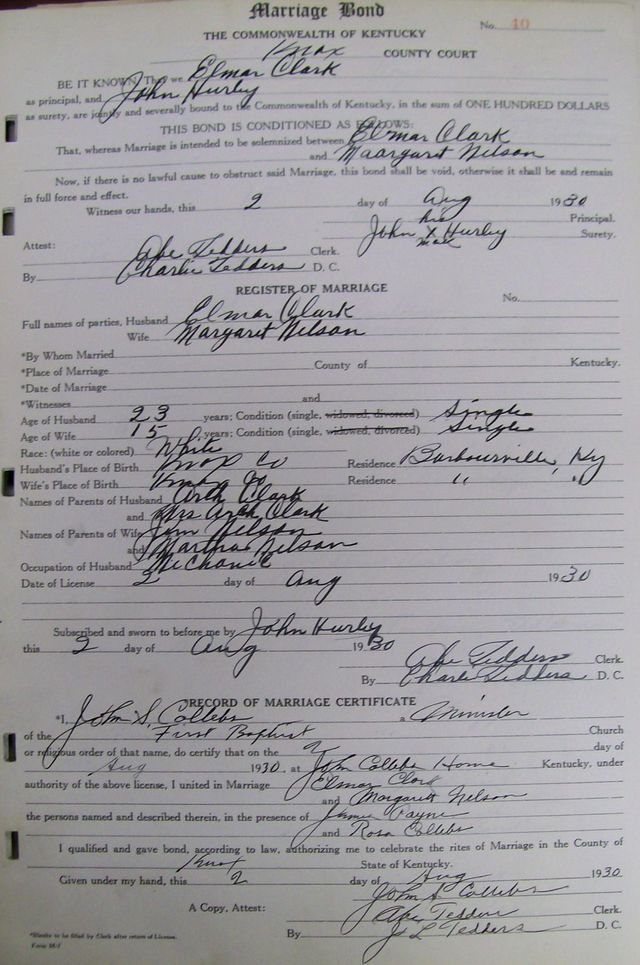 Marriage Bond
No. 40
THE COMMONWEALTH OF KENTUCKY
Knox COUNTY COURT
BE IT KNOWN, That we Elmar Clark
as principal, and John Hurley
as surety, are jointly and severally bound to the Commonwealth of Kentucky, in the sum of ONE HUNDRED DOLLARS
THIS BOND IS CONDITIONED AS FOLLOWS:
That, whereas Marriage is intended to be solemnized between Elmar Clark
and Maargaret Nelson
Now, if there is no lawful cause to obstruct said Marriage, this bond shall be void, otherwise it shall be and remain
in full force and effect.
Witness our hands, this 2 day of Aug 1930
his Principal.
John X Hurley Surety.
Attest: mark
Abe Tedders Clerk.
By Charlie Tedders D. C.
REGISTER OF MARRIAGE
No.
Full names of parties, Husband Elmar Clark
Wife Margaret Nelson
*By Whom Married
*Place of Marriage County of Kentucky.
*Date of Marriage
*Witnesses and
Age of Husband 23 years; Condition (single, widowed, divorced) Single
Age of Wife 15 years; Condition (single, widowed, divorced) Single
Race: (white or colored) White
Husband's Place of Birth Knox Co Residence Barbourville, Ky
Wife's Place of Birth Knox Co Residence " "
Names of Parents of Husband Arth Clark
and Mrs Arth Clark
Names of Parents of Wife Jim Nelson
and Martha Nelson
Occupation of Husband Mechanic
Date of License 2 day of Aug 1930
Subscribed and sworn to before me by John Hurley
this 2 day of Aug 1930
Abe Tedders Clerk.
By Charlie Tedders D. C.
RECORD OF MARRIAGE CERTIFICATE
*I, John S. Collebs a Minister
of the First Baptist Church
or religious order of that name, do certify that on the 2 day of
Aug 1930, at John Collebs Home Kentucky, under
authority of the above license, I united in Marriage Elmar Clark
and Margarett Nelson
the persons named and described therein, in the presence of Payne
and Rosa Collebs
I qualified and gave bond, according to law, authorizing me to celebrate the rites of Marriage in the County of
Knox State of Kentucky.
Given under my hand, this 2 day of Aug 1930
John S. Collebs
A Copy, Attest: Abe Tedders Clerk.
By J L Tedders D. C.
*Blanks to be filled by Clerk after return of License.